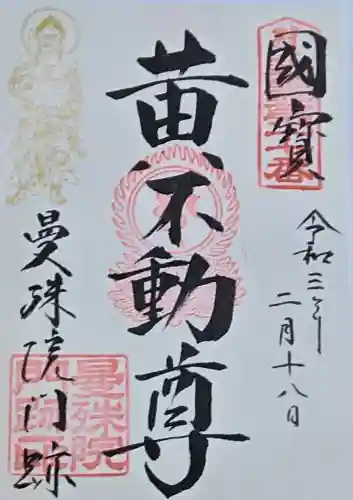 國寶
令和三年
二月十八日
黄不動尊
曼殊院門跡
曼殊院